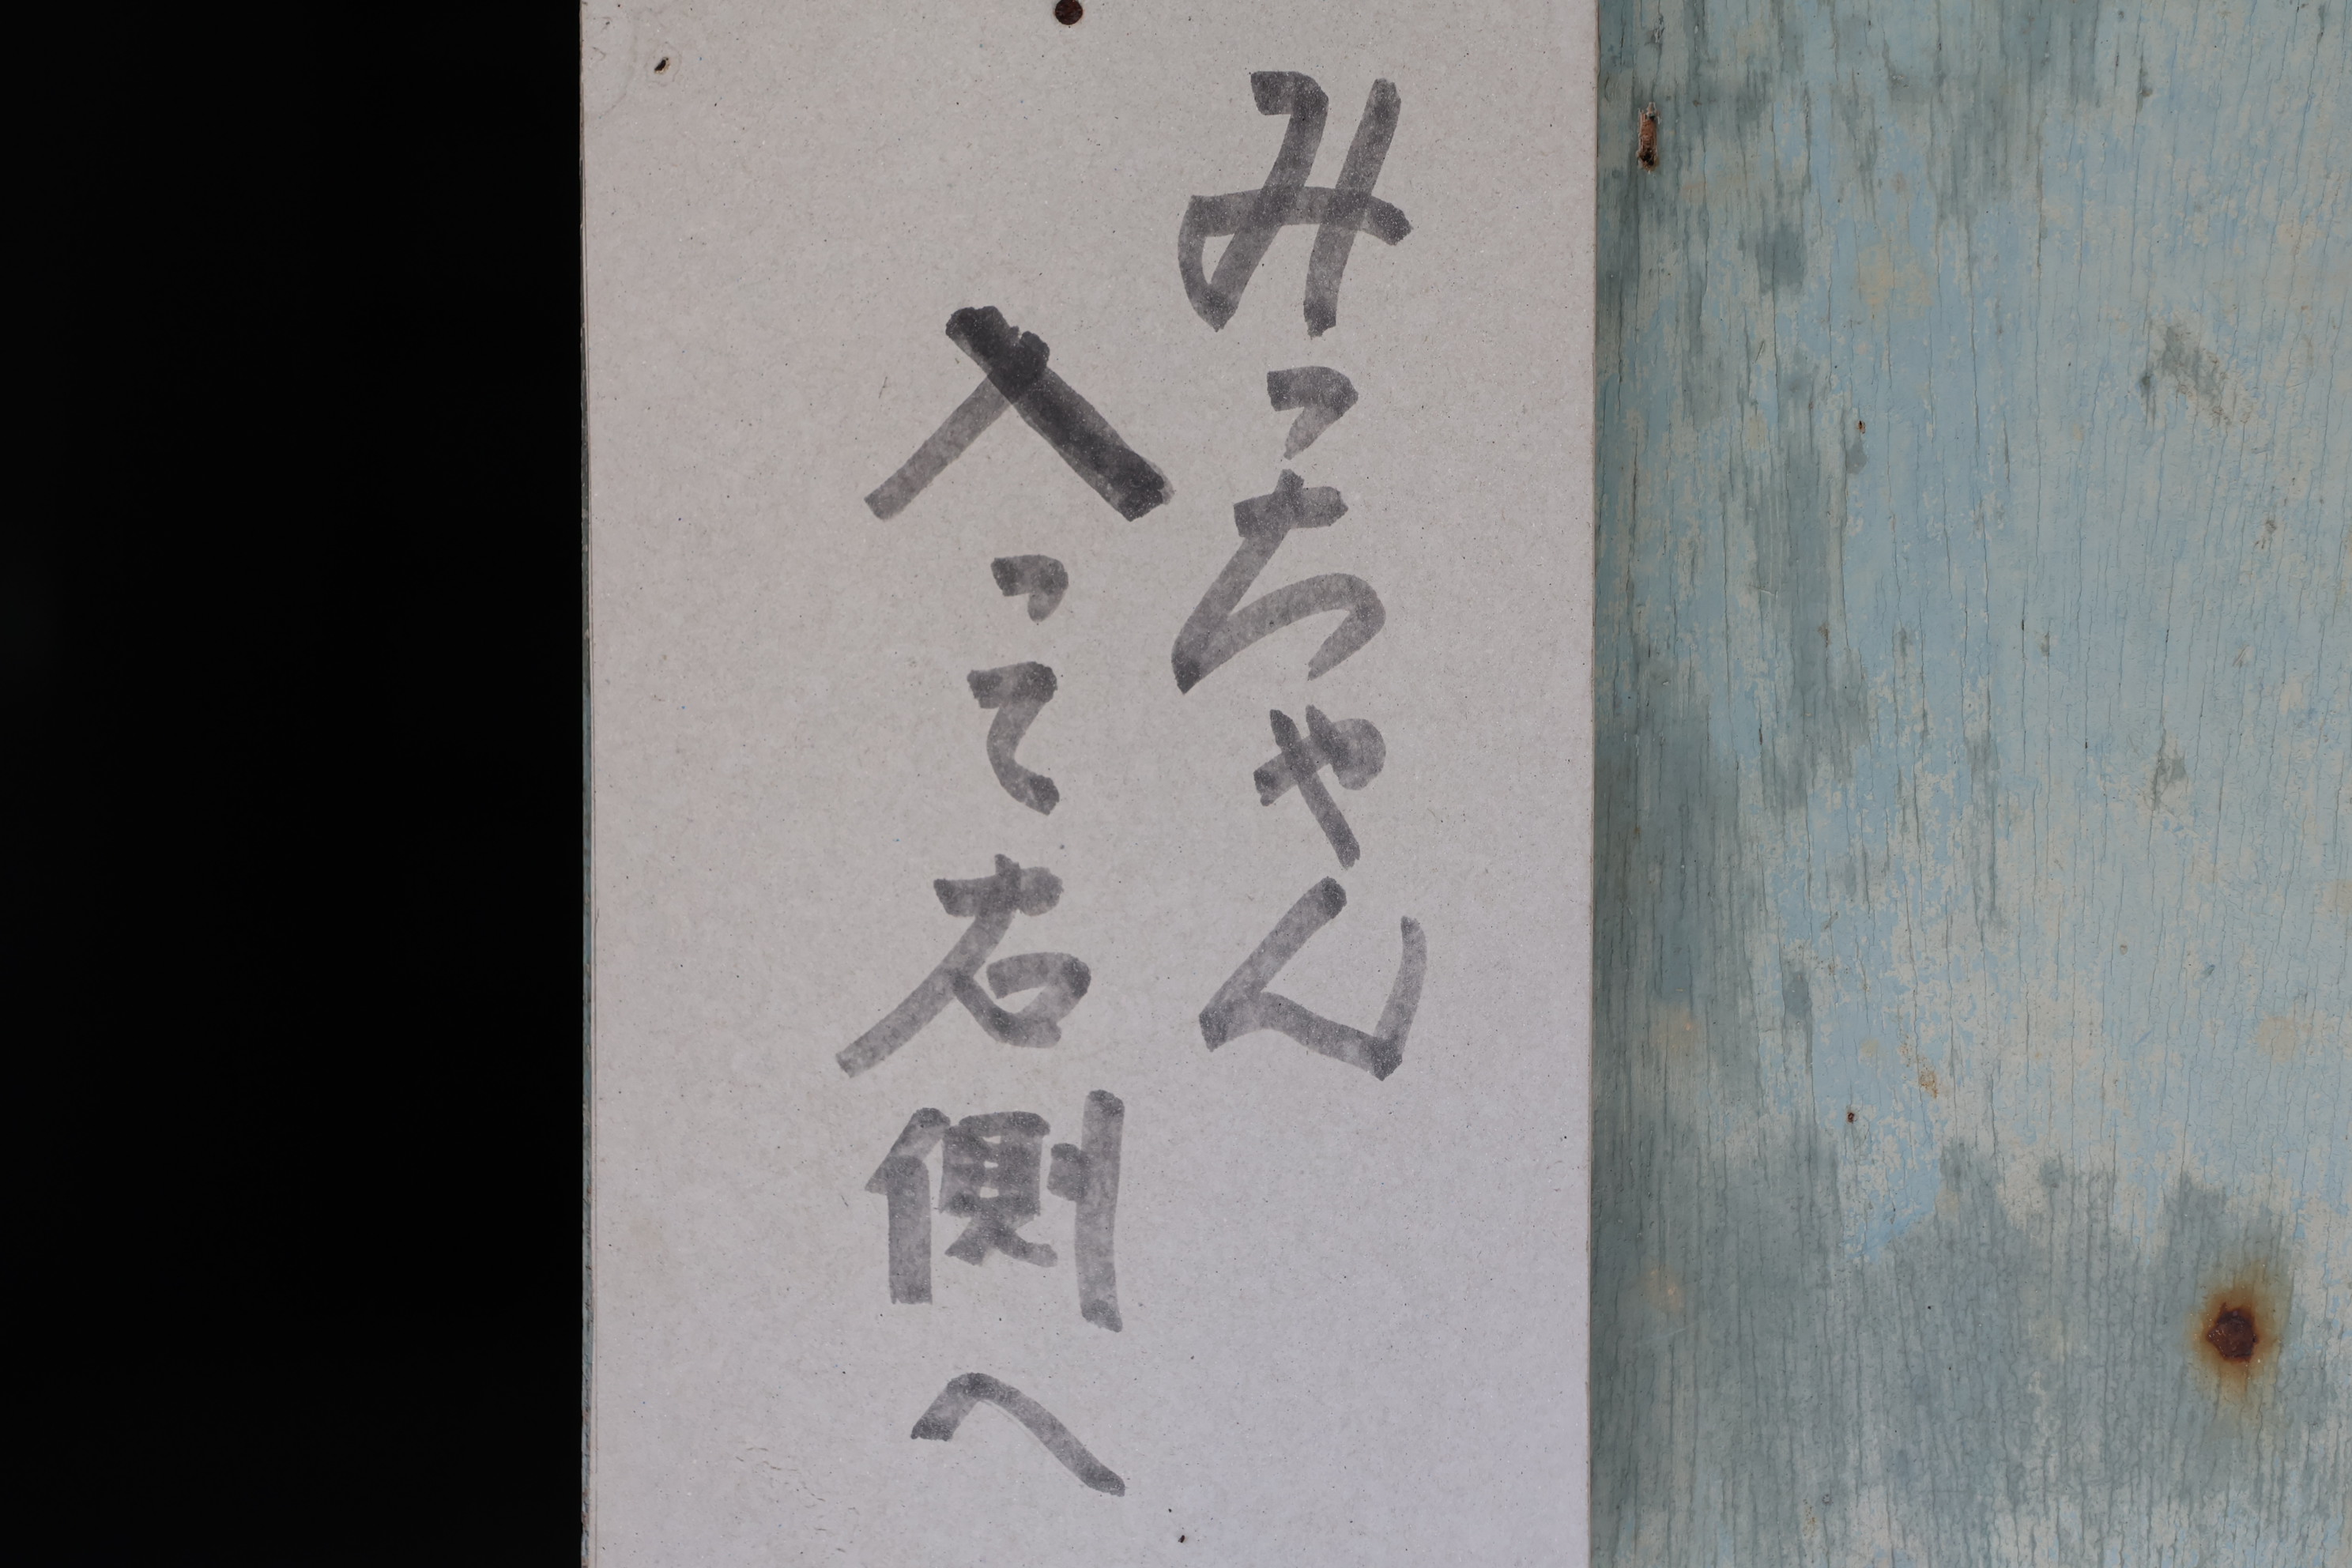 みっちゃん
入って右側へ